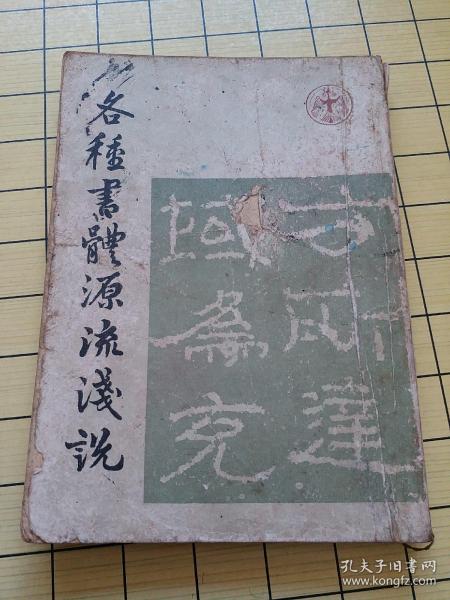 各種書體源流淺說
域為充
孔夫子旧书网
www.kongfz.com